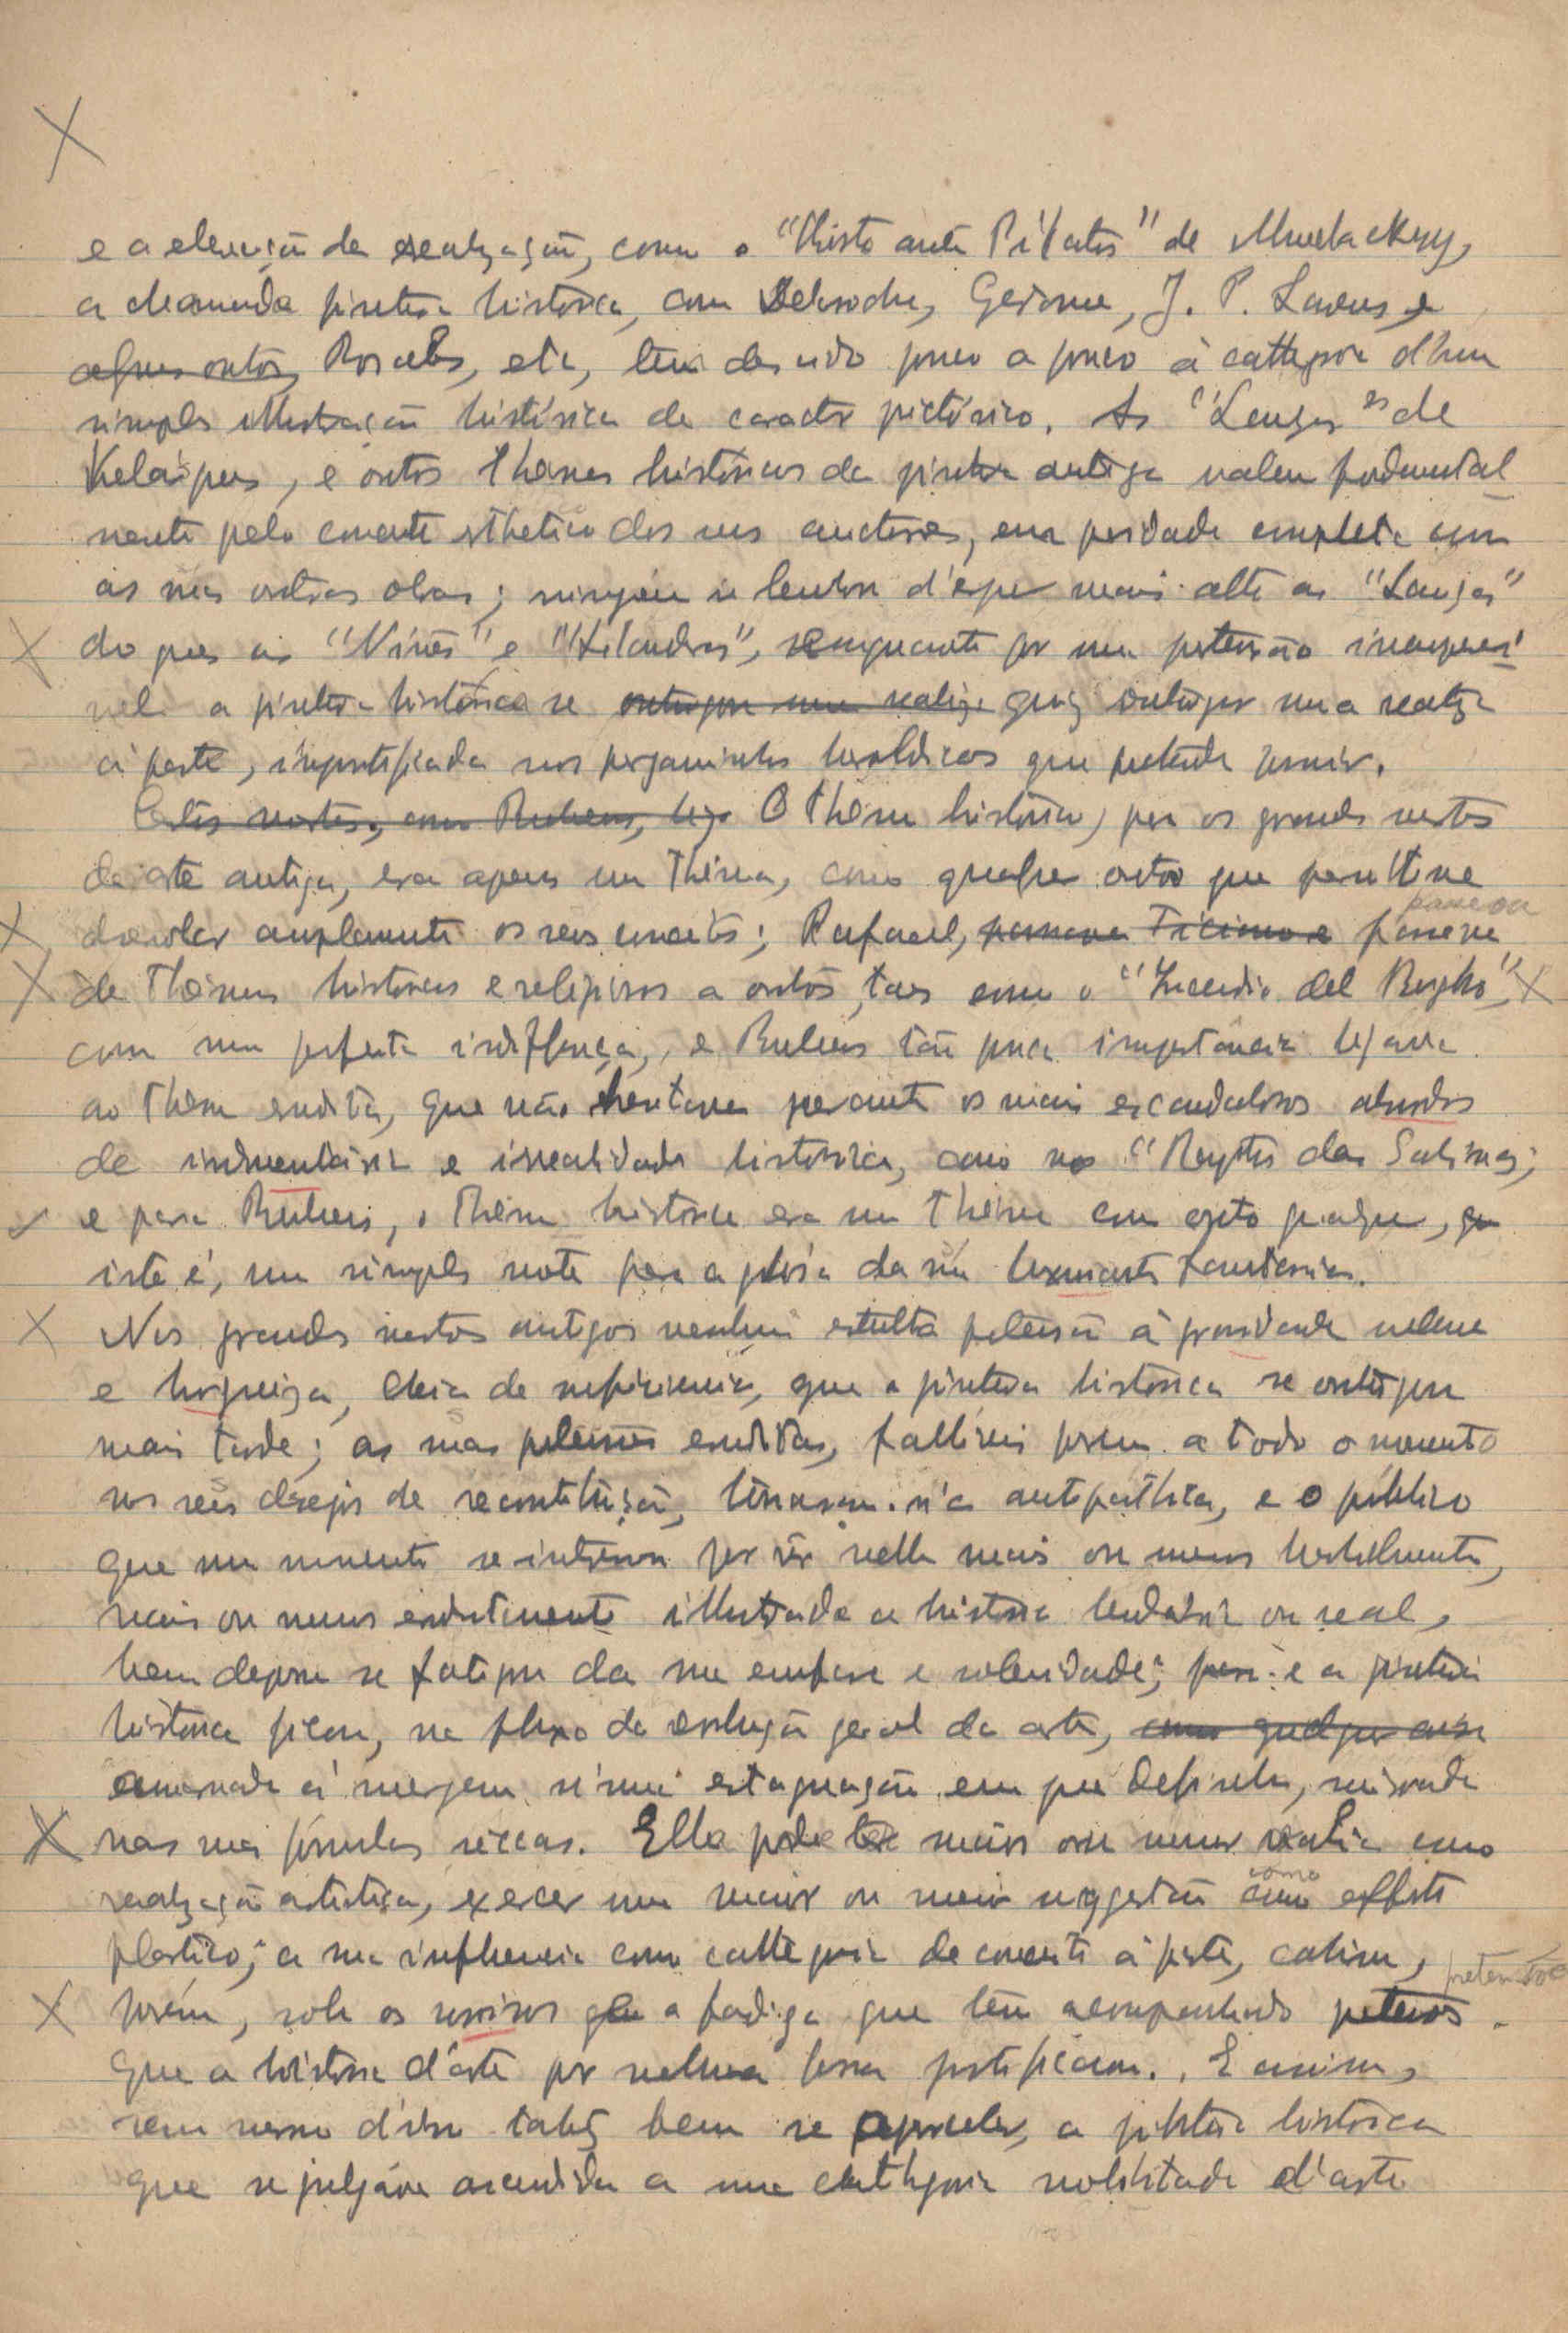 e a elevação da realização, como o "Christo ante Pilatos" de Munckaksy,
a chamada pintura historica, com Delaroche, Gerome, J. P. Laurens, e
alguns outros, Rosales, etc, tem descido pouco a pouco á cathegoria d'hum
simples illustração histórica de caracter pictórico. As "Lanças" de
Velasques, e outros themas históricos da pintura antiga valem fundamental-
mente pelo conceito esthetico dos seus auctores, em paridade completa com
as suas outras obras; ninguém se lembra d'erguer mais alto as "Lanças"
do que as "Ninas" e "Hilanderas", emquanto por uma pretensão incompreensi-
vel a pintura histórica se outorgou uma realeza quiz outorgar uma realeza
á parte, injustificada nos pergaminhos heraldicos que pretende possuir.
Certos mestres, como Rubens, O thema historico, para os grandes mestres
da arte antiga, era apenas um thema, como qualquer outro que permittisse
desenrolar amplamente os seus conceitos; Rafael, passava Ticiano e passava
passou
de themas historicos e religiosos a outros, taes como o "Incendio del Borgho",
com uma perfeita indifferença, e Rubens tão pouca importancia ligava
ao thema erudito, que não hesitava perante os mais escandalosos absurdos
de indumentária e irrealidade historica, como no "Rapto das Sabinas;
e para Rubens, o thema historico era um thema como outro qualquer,
isto é, um simples mote para a glosa da sua luxuriante fantasia.
Nos grandes mestres antigos nenhuma estulta pretensão á gravidade solene
e burgueza, cheia de suficiencia, que a pintura historica se outorgou
mais tarde; as suas pretensões eruditas, falliveis porem a todo o momento
nos seus desejos de reconstituição, tornaram-n'a antipathica, e o público
que um momento se interessou por vêr nella mais ou menos
mais ou menos eruditamente illustrada a historia lendaria ou real,
bem depressa se fatigou da sua emfase e solenidade; e a pintura
historica ficou, no fluxo da evolução geral da arte, como qualquer coisa
á margem n'uma estagnação em que definha,
nas suas fórmulas sêccas. Ella pode ter maior ou menor valia como
realização artistica, exercer uma maior ou menor suggestão como effeito
como
plastico; a sua influencia como cathegoria de conceito á parte, cahiu,
porém, sob os sorrisos e a fadiga que tem acompanhado pretensões
pretensões
que a historia d'arte por nenhuma forma justificara. E assim,
sem mesmo d'isso talvez bem se aperceber, a pintura historica
que se julgava ascendida a uma cathegoria nobilitada d'arte